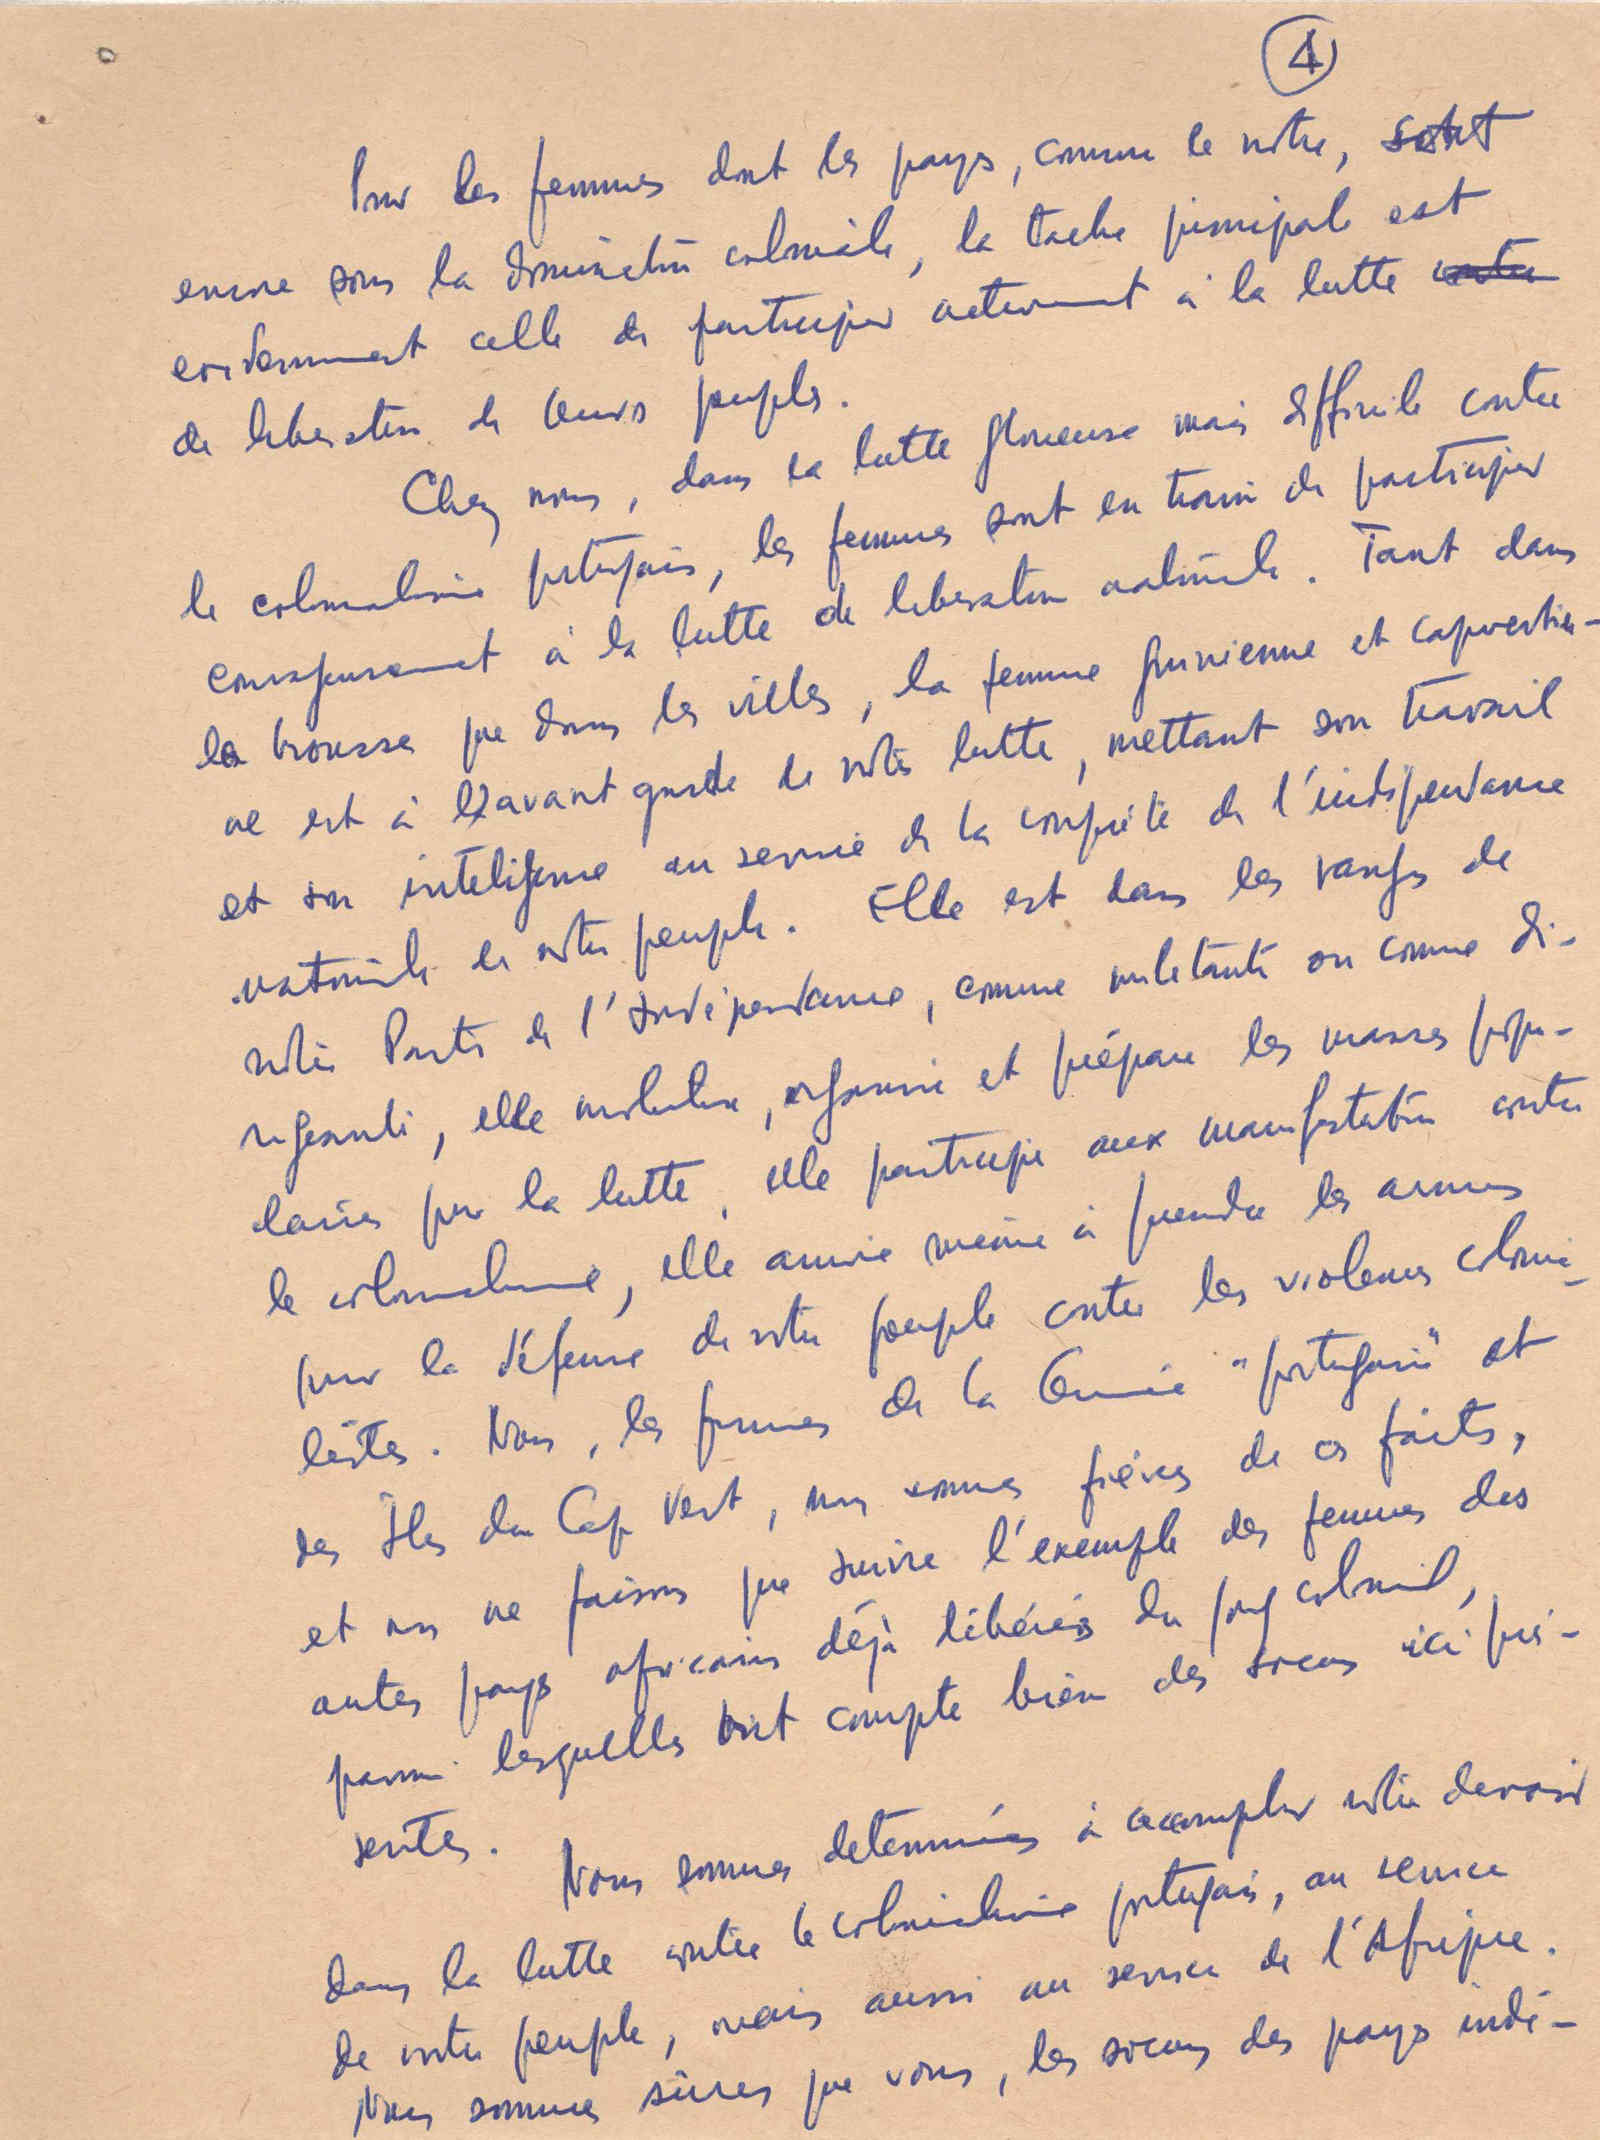 4
Pour les femmes dont les pays, comme le notre, sont
encore sous la domination coloniale, la tache principale est
evidemment celle de participer activement à la lutte contre
de liberation de leurs peuples.
Chez nous, dans la lutte glorieuse mais difficile contre
le colonialisme portugais, les femmes sont en train de participer
courageusement à la lutte de liberation nationale. Tant dans
la brousse que dans les villes, la femme guinienne et capverdien-
ne est à l'avant garde de notre lutte, mettant son travail
et son inteligence au service de la conquête de l'indépendance
nationale de notre peuple. Elle est dans les rangs de
notre Parti de l'Indépendance, comme militante ou comme di-
rigeante, elle mobilise, organise et prépare les masses popu-
laires pour la lutte, elle participe aux manifestations contre
le colonialisme, elle arrive même à prendre les armes
pour la défense de notre peuple contre les violences colonia-
listes. Nous, les femmes de la Guinée "portugaise" et
des Îles du Cap Vert, nous sommes fières de ces faits,
et nous ne faisons que suivre l'exemple des femmes des
autres pays africains déjà libérés du joug colonial,
parmi lesquelles on compte bien des soeurs ici pré-
sentes.
Nous sommes determinées à accomplir notre devoir
dans la lutte contre le colonialisme portugais, au service
de notre peuple, mais aussi au service de l'Afrique.
Nous sommes sûres que vous, les soeurs des pays indé-